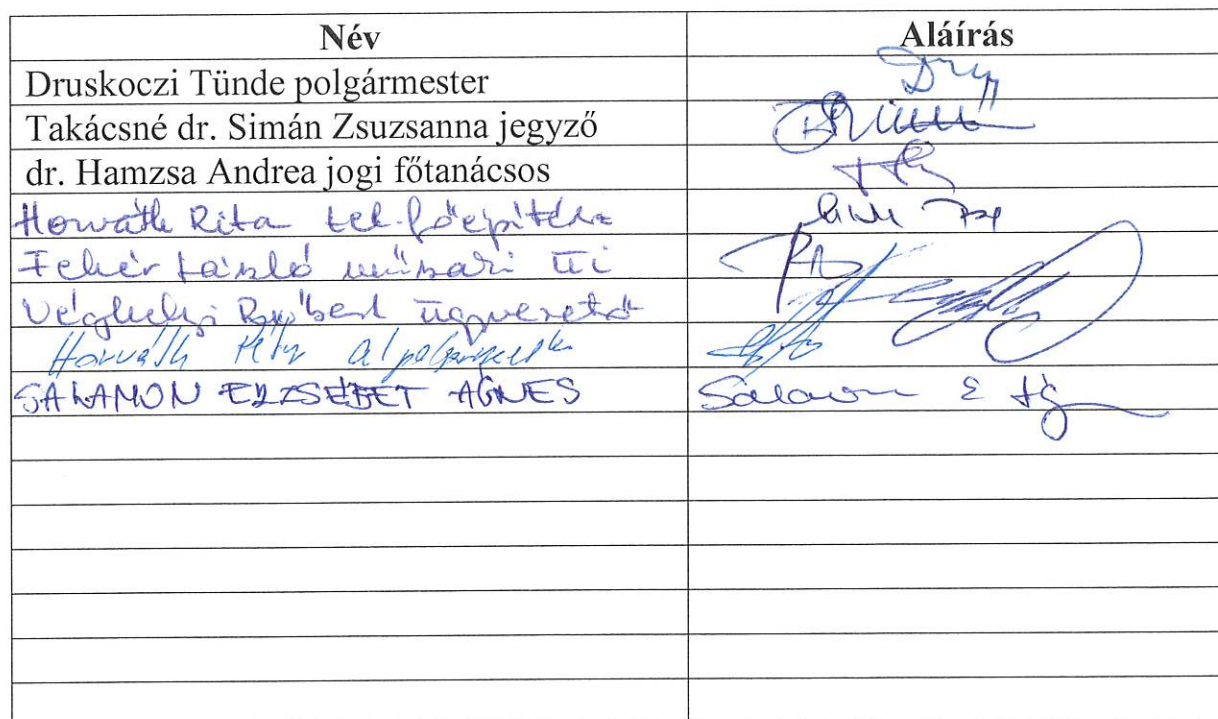 Név Aláírás
Druskoczi Tünde polgármester
Takácsné dr. Simán Zsuzsanna jegyző
dr. Hamzsa Andrea jogi főtanácsos
Horváth Rita tel. főépítész
Fehér László műszaki üi
Véghelyi Róbert ügyvezető
Horváth Péter alpolgármester
SALAMON ERZSÉBET ÁGNES Salamon E Ág